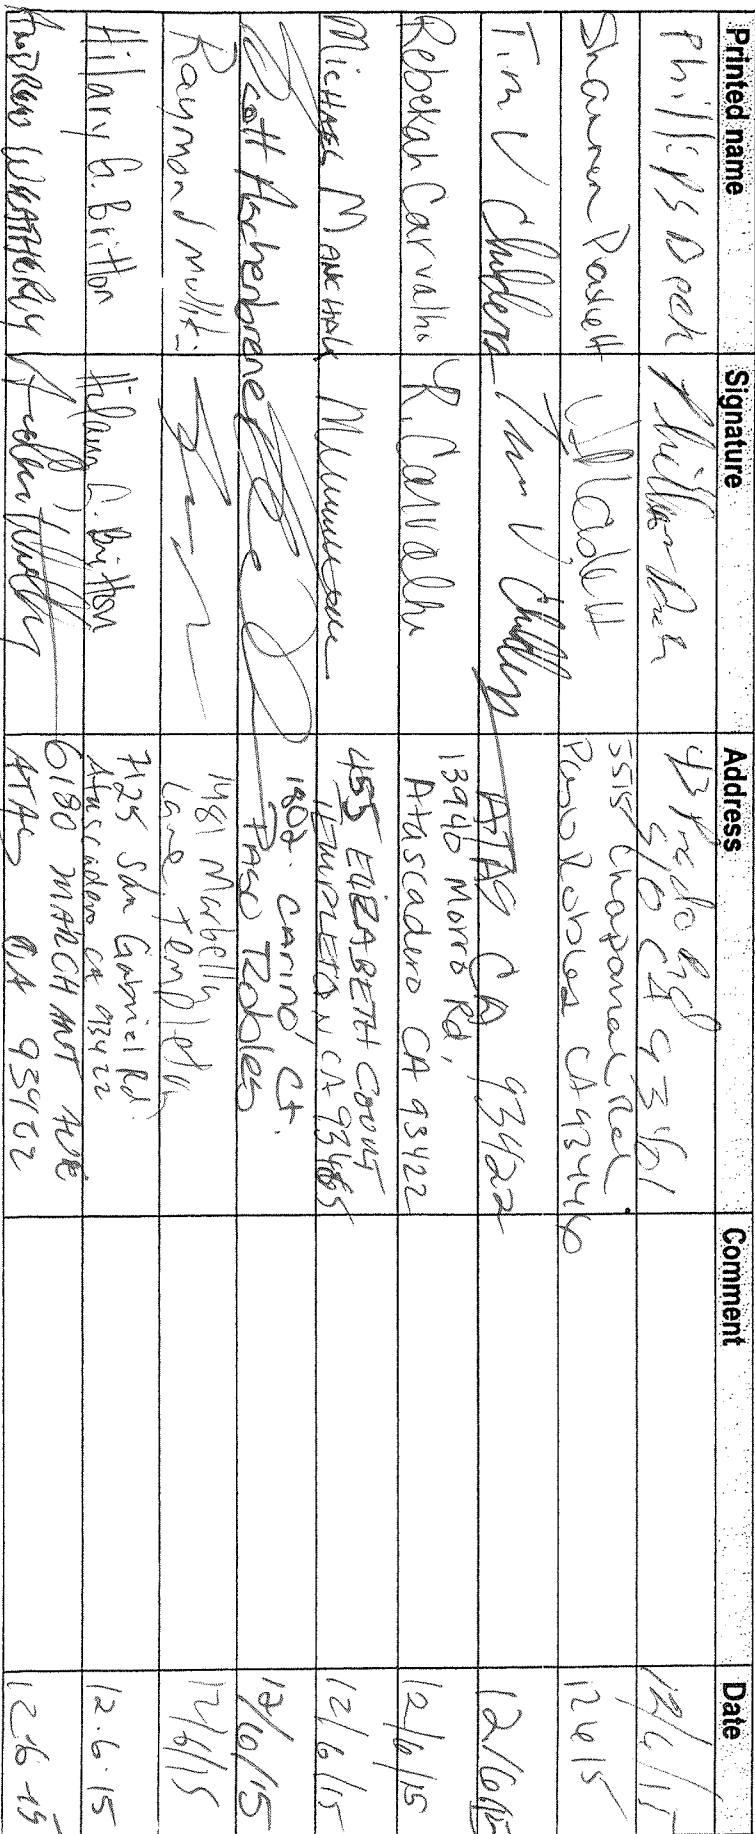 Printed name Signature Address Comment Date
Phillips 12/6/15
Shannon 5515 Chaparral Rd
Paso Robles CA 93446 12615
Tim V Childers Tim V Childers ATAS CA 93422 12/6/15
Rebekah Carvalho R. Carvalho 13940 Morro Rd,
Atascadero CA 93422 12/6/15
Michael 455 ELIZABETH COURT
TEMPLETON CA 93465 12/6/15
Scott 1802 CARINO Ct.
PASO Robles 12/6/15
Raymond 1481 Marbella
Lane, Templeton 12/6/15
Hilary G. Britton Hilary G. Britton 7125 San Gabriel Rd
Atascadero CA 93422 12.6.15
ANDREW WEATHERLY 6180 MARCHANT AVE
ATAS CA 93422 12-6-15